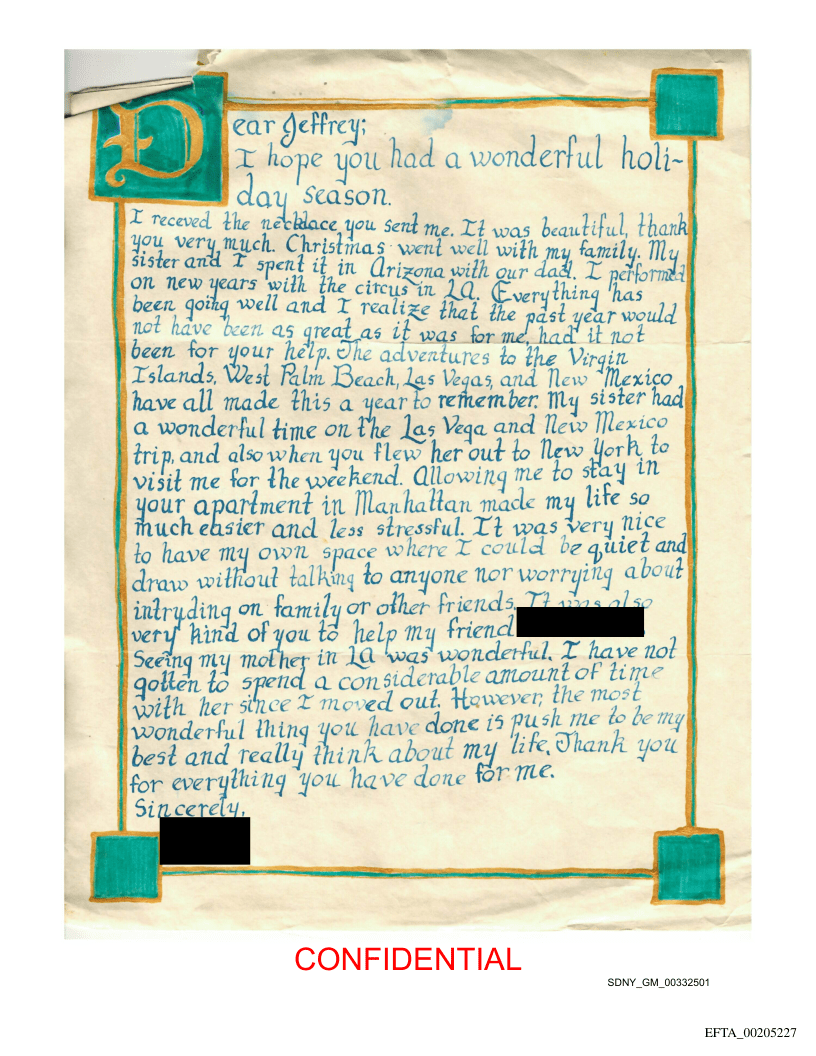 Dear Jeffrey;
I hope you had a wonderful holi-
day season.
I receved the necklace you sent me. It was beautiful, thank
you very much. Christmas went well with my family. My
sister and I spent it in Arizona with our dad. I performed
on new years with the circus in LA. Everything has
been going well and I realize that the past year would
not have been as great as it was for me, had it not
been for your help. The adventures to the Virgin
Islands, West Palm Beach, Las Vegas, and New Mexico
have all made this a year to remember. My sister had
a wonderful time on the Las Vega and New Mexico
trip, and also when you flew her out to New York to
visit me for the weekend. Allowing me to stay in
your apartment in Manhattan made my life so
much easier and less stressful. It was very nice
to have my own space where I could be quiet and
draw without talking to anyone nor worrying about
intryding on family or other friends. It was also
very kind of you to help my friend
Seeing my mother in LA was wonderful. I have not
gotten to spend a considerable amount of time
with her since I moved out. However, the most
wonderful thing you have done is push me to be my
best and really think about my life. Thank you
for everything you have done for me.
Sincerely,
CONFIDENTIAL
SDNY_GM_00332501
EFTA_00205227